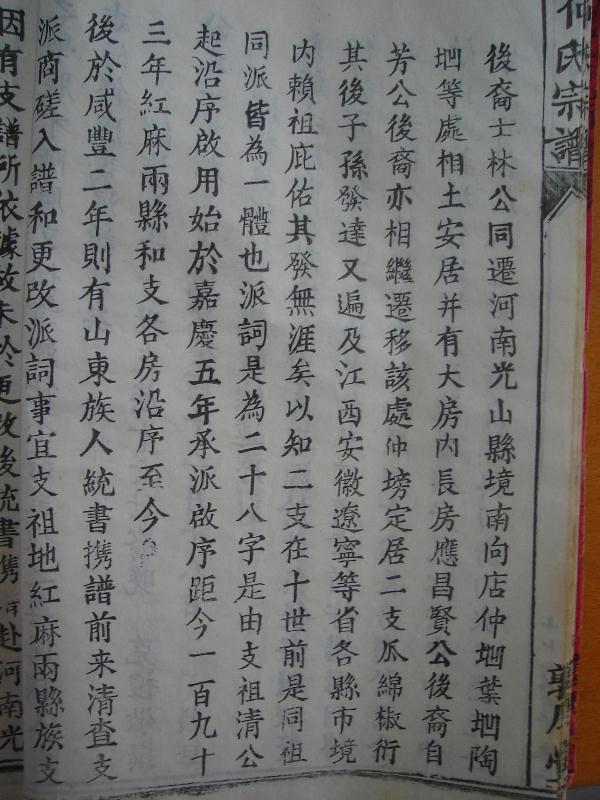 何氏宗譜
後裔士林公同遷河南光山縣境南向店仲𡉏葉𡉏陶
𡉏等處相土安居并有大房内長房應昌賢公後裔自
芳公後裔亦相繼遷移該處仲塝定居二支瓜綿椒衍
其後子孫發達又遍及江西安徽遼寧等省各縣市境
内賴祖庇佑其發無涯矣以知二支在十世前是同祖
同派皆為一體也派詞是為二十八字是由支祖清公
起沿序啟用始於嘉慶五年承派啟序距今一百九十
三年紅麻兩縣和支各房沿序至今
後於咸豐二年則有山東族人統書携譜前来清查支
派商磋入譜和更改派詞事宜支祖地紅麻兩縣族支
因有支譜所依據故未於更改後統書携赴河南光